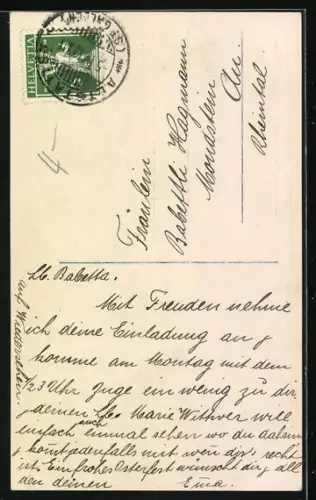 HELVETIA
(ST. GALLEN)
4-
Fräulein
Babettli Hagmann
Mondstein
Au.
Rheintal
Lb. Babetta.
Mit Freuden nehme
ich deine Einladung an &
komme am Montag mit dem
1/23 Uhr Zuge ein wenig zu dir.
Marie Wittwer will
einfach auch einmal sehen wo du daheim
& kommt jedenfalls mit wen dir's recht
ist. Ein frohes Osterfest wünscht dir & all
den deinen Ema.
auf Wiedersehen.